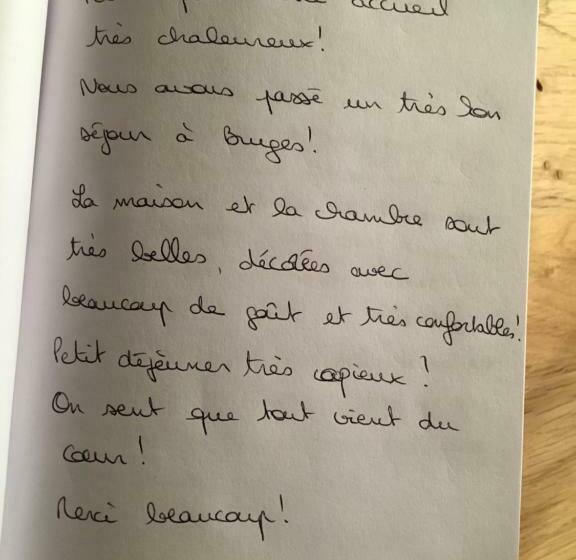 accueil
très chaleureux!
Nous avons passé un très bon
séjour à Bruges!
La maison et la chambre sont
très belles, décorées avec
beaucoup de goût et très confortables!
Petit déjeuner très copieux!
On sent que tout vient du
cœur!
Merci beaucoup!